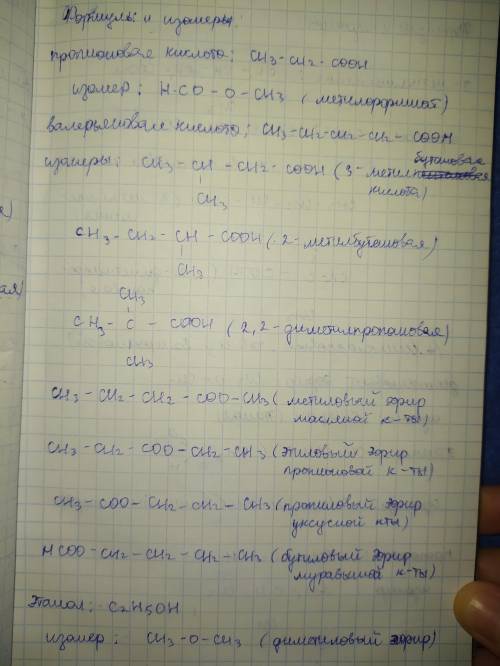 Формулы и изомеры:
пропионовая кислота: CH3-CH2-COOH
изомер: H-CO-O-CH3 (метилформиат)
валерьяновая кислота: CH3-CH2-CH2-CH2-COOH
бутановая
изомеры: CH3-CH-CH2-COOH (3-метил
CH3
кислота)
CH3-CH2-CH-COOH (2-метилбутановая)
CH3
CH3
CH3-C-COOH (2,2-диметилпропановая)
CH3
CH3-CH2-CH2-COO-CH3 (метиловый эфир
масляной к-ты)
CH3-CH2-COO-CH2-CH3 (этиловый эфир
пропионовой к-ты)
CH3-COO-CH2-CH2-CH3 (пропиловый эфир
уксусной кты)
HCOO-CH2-CH2-CH2-CH3 (бутиловый эфир
муравьиной к-ты)
Этанол: C2H5OH
изомер: CH3-O-CH3 (диметиловый эфир)
ая)